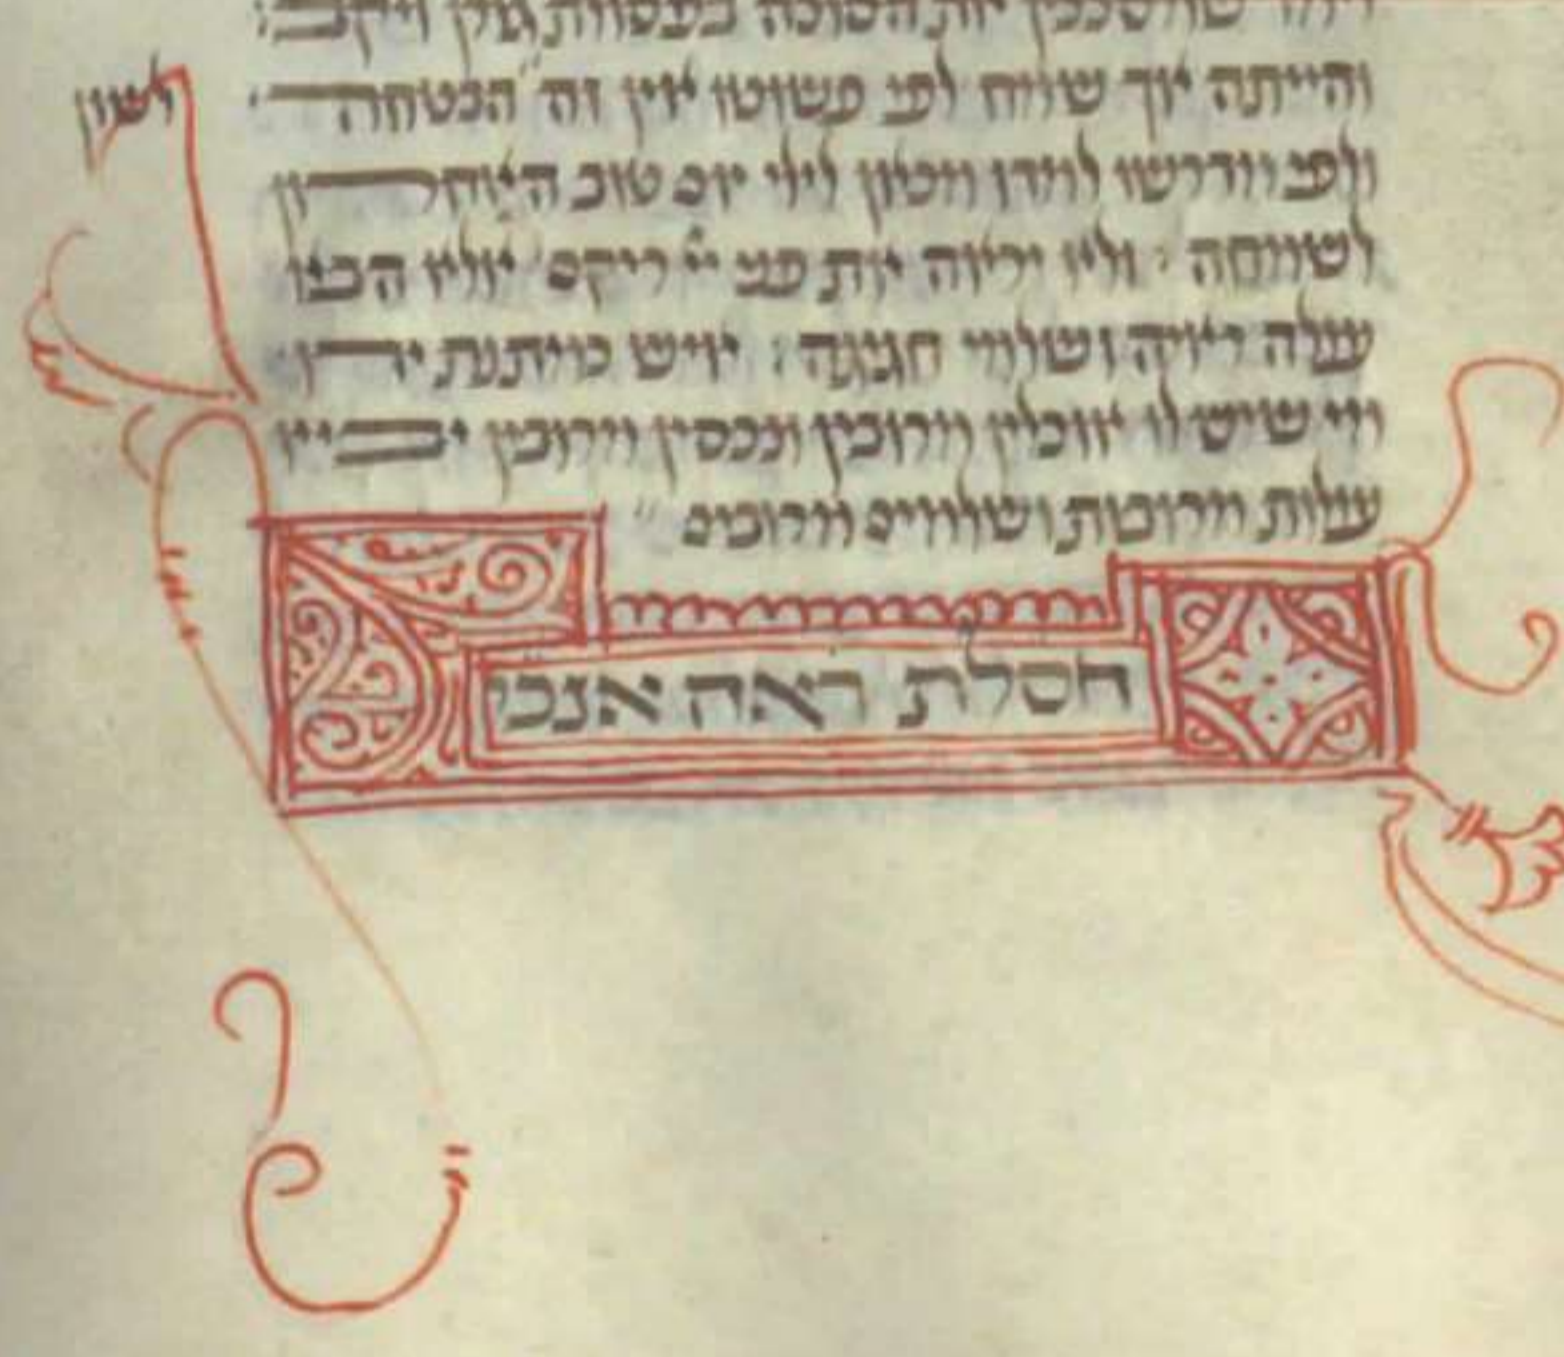 שמסככין את הסוכה בפסולת גורן ויקב:
והייתה אך שמח לפי פשוטו אין זה הבטחה
לשון
ולפי מדרשו למדו מכאן לילי יום טוב האחרון
לשמחה : ולא יראה את פני יי ריקם אלא הבא
עולה ראיה ושלמי חגיגה : איש כמתנת ידו
מי שיש לו אוכלין מרובין ונכסין מרובין יביא
עולות מרובות ושלמים מרובים
חסלת ראה אנכי